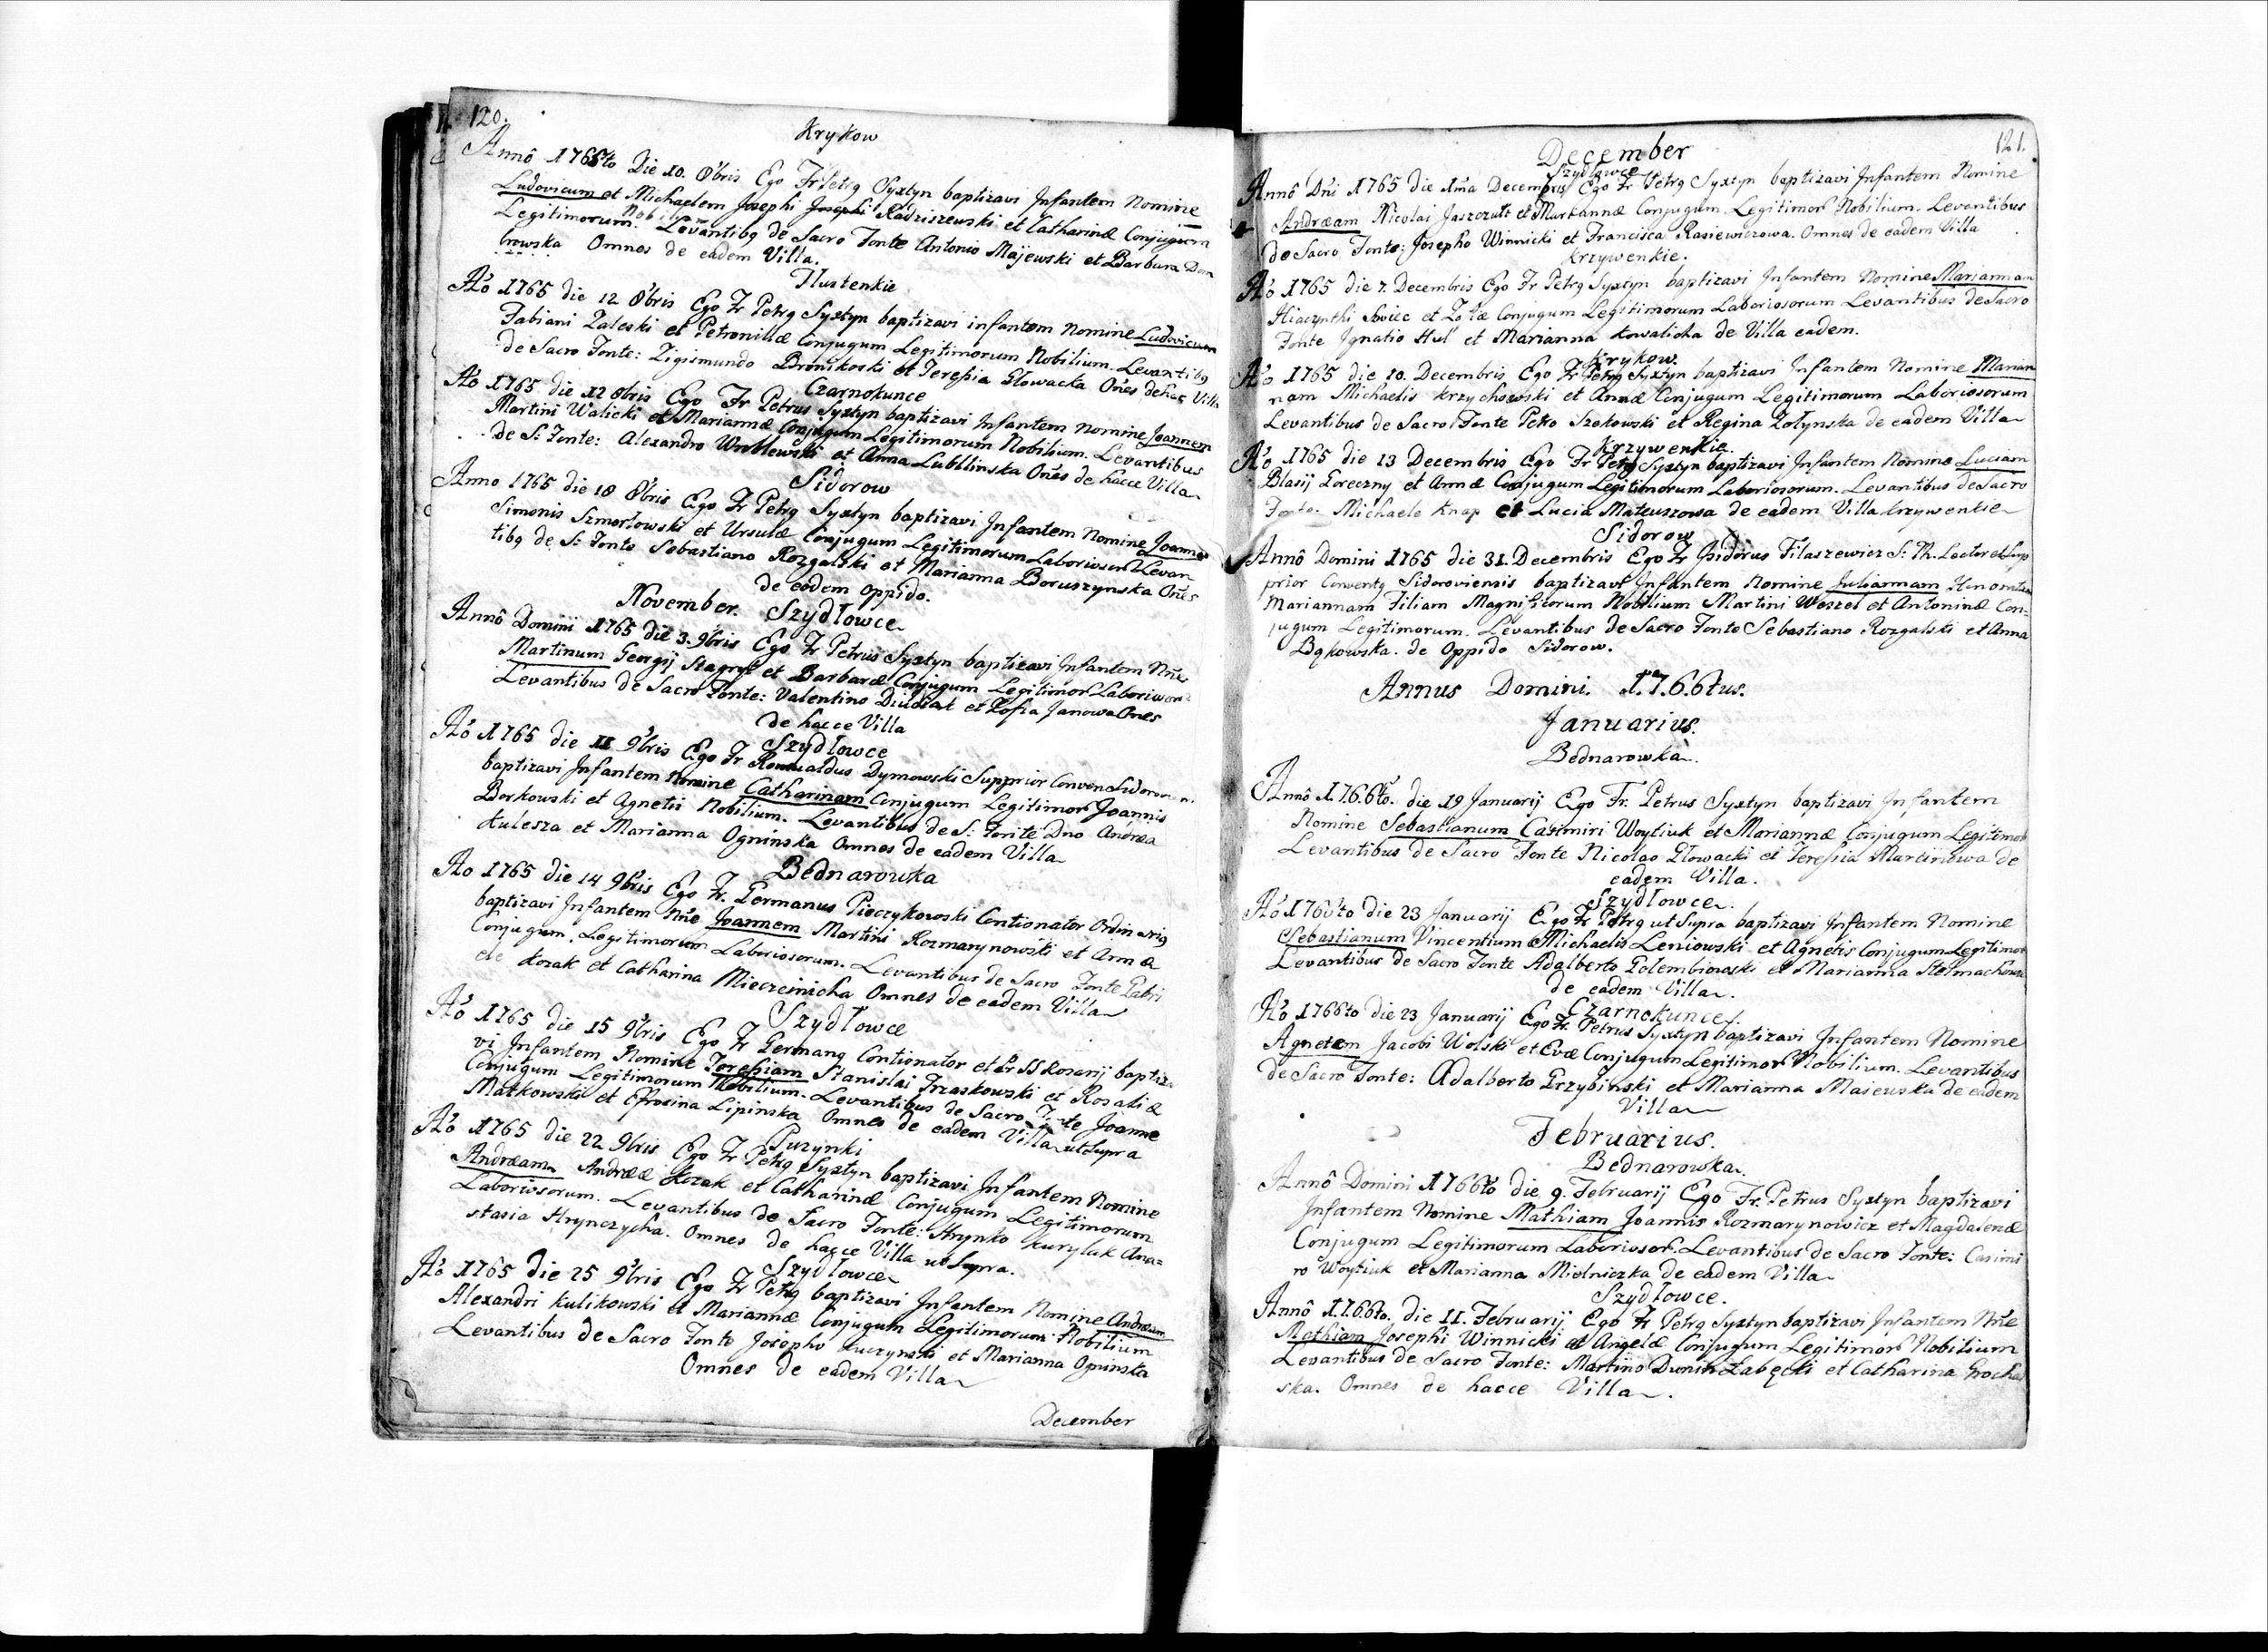 120.
Krykow
Annô 1765to Die 10. 8bris Ego Fr Petrg Syxtyn baptizavi Infantem Nomine
Ludovicum et Michaelem Josephi Josephi Radziszewski et Catharinæ Conjugum
Legitimorum Nobilium. Levantibg de Sacro Fonte Antonio Majewski et Barbara Dom
browska Omnes de eadem Villa.
Tlustenkie
Aô 1765 die 12 8bris Ego Fr Petrg Syxtyn baptizavi infantem nomine Ludovicum
Fabiani Zaleski et Petronillæ Conjugum Legitimorum Nobilium. Levantibg
de Sacro Fonte: Zigismundo Bronikoski et Teresia Głowacka Oñes de hac Villa
Czarnokunce
Aô 1765 die 12 8bris Ego Fr Petrus Syxtyn baptizavi Infantem nomine Joannem
Martini Walicki et Mariannæ Conjugum Legitimorum Nobilium. Levantibus
de S: Fonte: Alexandro Wroblewski et Anna Lubllinska Oñes de hacce Villa
Sidorow
Anno 1765 die 18 8bris Ego Fr Petrg Syxtyn baptizavi Infantem Nomine Joannem
Simonis Szmorłowski et Ursulæ Conjugum Legitimorum Laboriosor Levan
tibg de S: Fonte Sebastiano Rozgalski et Marianna Boruszynska Oñes
de eodem oppido.
November. Szydłowce
Annô Domini 1765 die 3. 9bris Ego Fr Petrus Syxtyn baptizavi Infantem Nñe
Martinum Georgij et Barbaræ Conjugum Legitimor Laborioror
Levantibus de Sacro Fonte: Valentino et Zofia Janowa Oñes
de hacce Villa
Szydłowce
Aô 1765 die 11 9bris Ego Fr Romualdus Dymowski Supprior Conven Sidorovien.
baptizavi Infantem nomine Catharinam Conjugum Legitimor Joannis
Borkowski et Agnetis Nobilium. Levantibus de S: Fonte Dno Andrea
Kulesza et Marianna Ogninska Omnes de eadem Villa
Bednarowka
Ao 1765 die 14 9bris Ego Fr. Germanus Pieczykowski Contionator Ordinarig
baptizavi Infantem Nñe Joannem Martini Rozmarynowski et Annæ
Conjugum, Legitimorum Laboriosorum. Levantibus de Sacro Fonte Gabri
ele Kozak et Catharina Mieczeinicha Omnes de eadem Villa
Szydłowce
Aô 1765 die 15 9bris Ego Fr Germang Contionator et Pr SS Rosarij baptiza
vi Infantem Nomine Teresiam Stanislai Trzaskowski et Rosaliæ
Conjugum Legitimorum Nobilium. Levantibus de Sacro Fonte Joanne
Matkowski et Efrosina Lipinska Omnes de eadem Villa ut Supra
Puzynki
Aô 1765 die 22 9bris Ego Fr Petrg Syxtyn baptizavi Infantem Nomine
Andræam Andreæ Kozak et Catharinæ Conjugum Legitimorum
Laboriosorum. Levantibus de Sacro Fonte: Hrynko Kuryluk Ana=
stasia Hrynczycha. Omnes de hacce Villa ut Supra.
Szydłowce
Aô 1765 die 25 9bris Ego Fr Petrg baptizavi Infantem Nomine Andream
Alexandri Kulikowski et Mariannæ Conjugum Legitimorum Nobilium
Levantibus de Sacro Fonte Josepho Kuczynski et Marianna Ogninska
Omnes de eadem Villa
December
121.
December
Szydłowce
Annô Dñi 1765 die 1ma Decembris Ego Fr Petrg Syxtyn baptizavi Infantem Nomine
Andræam Nicolai et Mariannæ Conjugum Legitimor Nobilium. Levantibus
de Sacro Fonte; Josepho Winnicki et Francisca Rasiewiczowa. Omnes de eadem Villa
Krzywenkie.
Aô 1765 die 7. Decembris Ego Fr Petrg Syxtyn baptizavi Infantem Nomine Mariannam
Hiacynthi Swiec et Zofiæ Conjugum Legitimorum Laboriosorum Levantibus de Sacro
Fonte Ignatio Hul et Marianna Kowalicha de Villa eadem.
Krykow.
Aô 1765 die 10. Decembris Ego Fr Petrg Syxtyn baptizavi Infantem Nomine Marian
nam Michaelis Krzychowski et Annæ Conjugum Legitimorum Laboriosorum
Levantibus de Sacro Fonte Petro Szokowski et Regina Zołynska de eadem Villa
Krzywenkie.
Aô 1765 die 13 Decembris Ego Fr Petrg Syxtyn baptizavi Infantem Nomine Luciam
Blasij Goreczny et Annæ Conjugum Legitimorum Laboriosorum. Levantibus de Sacro
Fonte. Michaele Knap et Lucia Mateuszowa de eadem Villa Krzywenkie
Sidorow
Annô Domini 1765 die 31. Decembris Ego Fr Isidorus Filaszewicz S: Th. Lector et Sup
prior Conventg Sidoroviensis baptizavi Infantem Nomine Juliannam Honoratam
Mariannam Filiam Magnificorum Nobilium Martini Weszel et Antoninæ Con=
jugum Legitimorum. Levantibus de Sacro Fonte Sebastiano Rozgalski et Anna
Bąkowska. de Oppido Sidorow.
Annus Domini. 1.7.6.6tus.
Januarius.
Bednarowka.
Annô 1.7.6.6to. die 19 Januarij Ego Fr. Petrus Syxtyn baptizavi Infantem
Nomine Sebastianum Casimiri Woytiuk et Mariannæ Conjugum Legitimor
Levantibus de Sacro Fonte Nicolao Głowacki et Teressia Martinowa de
eadem Villa.
Szydłowce.
Aô 1766to die 23 Januarij Ego Fr Petrg ut Supra baptizavi Infantem Nomine
Sebastianum Vincentium Michaelis Leniowski et Agnetis Conjugum Legitimor
Levantibus de Sacro Fonte Adalberto Golembiowski et Marianna Stelmachowa
de eadem Villa.
Czarnokunce
Aô 1766to die 23 Januarij Ego Fr. Petrus Syxtyn baptizavi Infantem Nomine
Agnetem Jacobi Wolski et Evæ Conjugum Legitimor Nobilium. Levantibus
de Sacro Fonte: Adalberto Grzybinski et Marianna Majewska de eadem
Villa
Februarius.
Bednarowka.
Annô Domini 1766to die 9. Februarij Ego Fr. Petrus Syxtyn baptizavi
Infantem Nomine Mathiam Joannis Rozmarynowicz et Magdalenæ
Conjugum Legitimorum Laboriosor. Levantibus de Sacro Fonte: Casimi
ro Woytiuk et Marianna Mielniczka de eadem Villa
Szydłowce.
Annô 1.7.6.6to. die 11. Februarij Ego Fr Petrg Syxtyn baptizavi Infantem Nñe
Mathiam Josephi Winnicki et Angelæ Conjugum Legitimor Nobilium
Levantibus de Sacro Fonte: Martino Dunin Łabęcki et Catharina Grocho
ska. Omnes de hacce Villa.